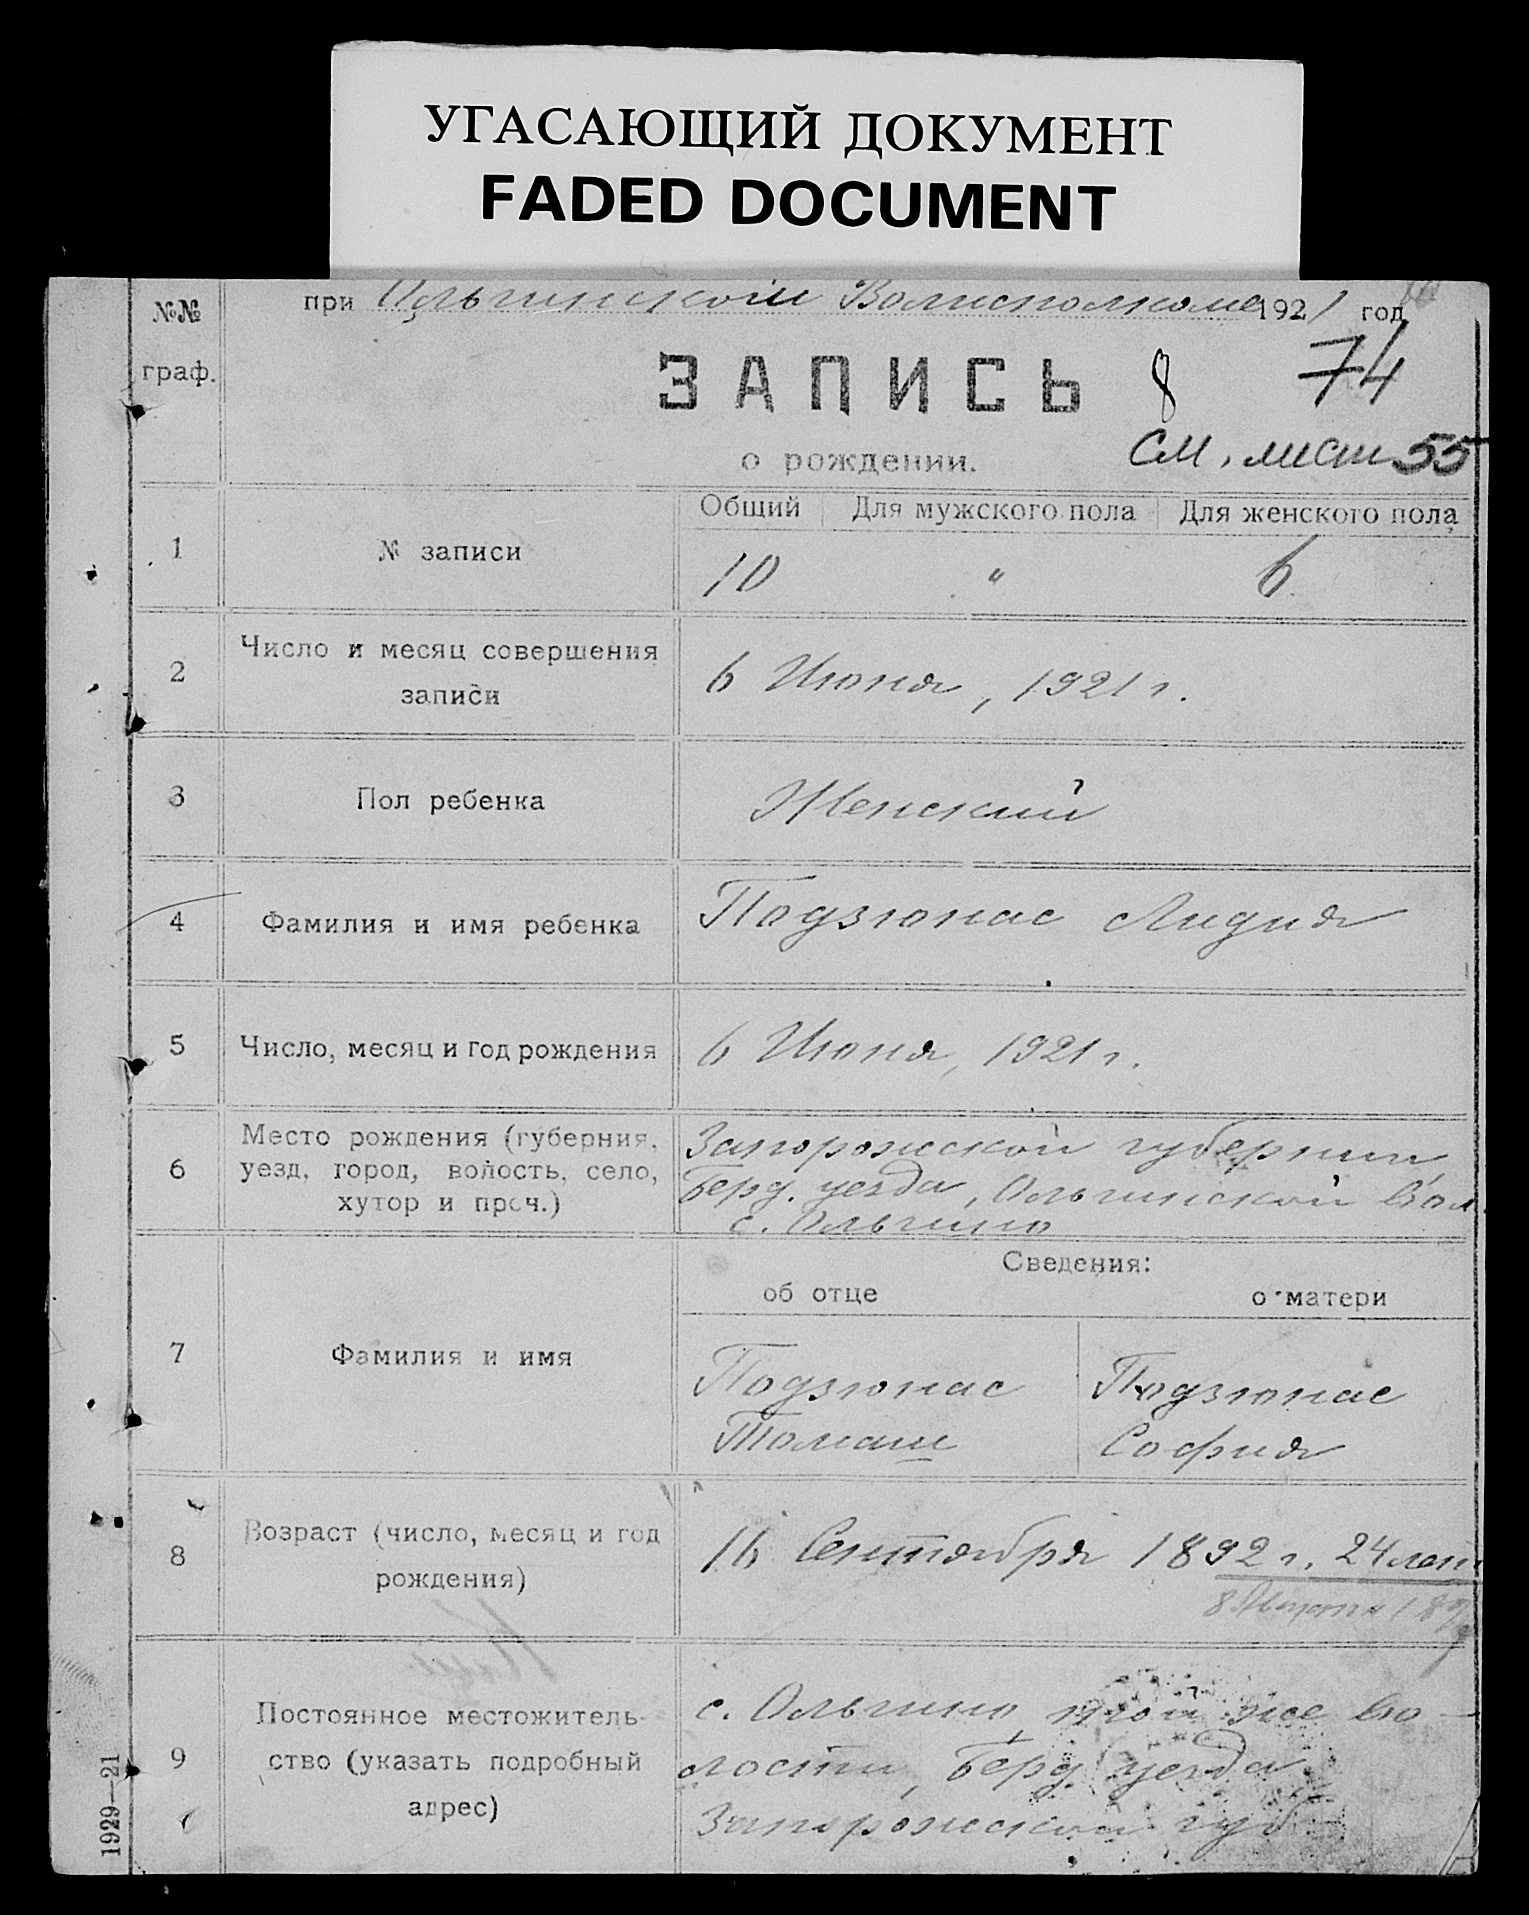 УГАСАЮЩИЙ ДОКУМЕНТ
FADED DOCUMENT
№№ граф.
при Ольгинском Волисполкоме 1921 год
74
ЗАПИСЬ 8
см. лист 55
о рождении.
Общий Для мужского пола Для женского пола
1 № записи 10 " 6
2 Число и месяц совершения
записи
6 Июня, 1921 г.
3 Пол ребенка Женский
4 Фамилия и имя ребенка Подзюнас Лидия
5 Число, месяц и год рождения 6 Июня, 1921 г.
6 Место рождения (губерния,
уезд, город, волость, село,
хутор и проч.)
Запорожской губернии
Берд. уезда, Ольгинской Вол.
с. Ольгино
Сведения:
об отце о матери
7 Фамилия и имя
Подзюнас
Томаш
Подзюнас
София
8 Возраст (число, месяц и год
рождения)
16 Сентября 1892 г. 24 лет
8 Августа 189
9 Постоянное местожитель-
ство (указать подробный
адрес)
с. Ольгино, той же во-
лости, Берд. уезда
Запорожской губ.
1929—21